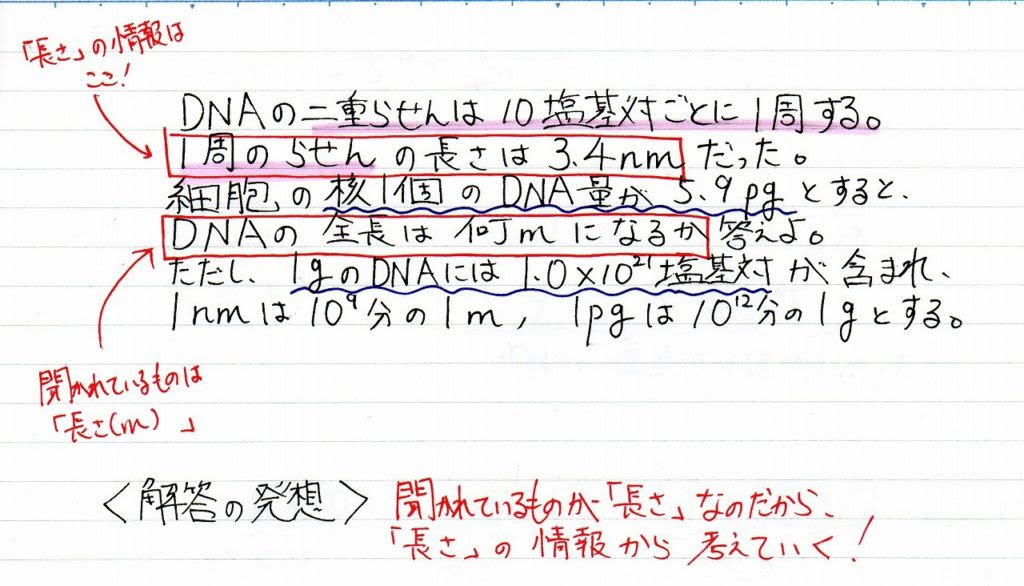 「長さ」の情報は
ここ！
DNAの二重らせんは10塩基対ごとに1周する。
1周のらせんの長さは3.4nmだった。
細胞の核1個のDNA量が5.9pgとすると、
DNAの全長は何mになるか答えよ。
ただし、1gのDNAには1.0×10²¹塩基対が含まれ、
1nmは10⁹分の1m, 1pgは10¹²分の1gとする。
聞かれているものは
「長さ(m)」
〈解答の発想〉聞かれているものが「長さ」なのだから、
「長さ」の情報から考えていく！